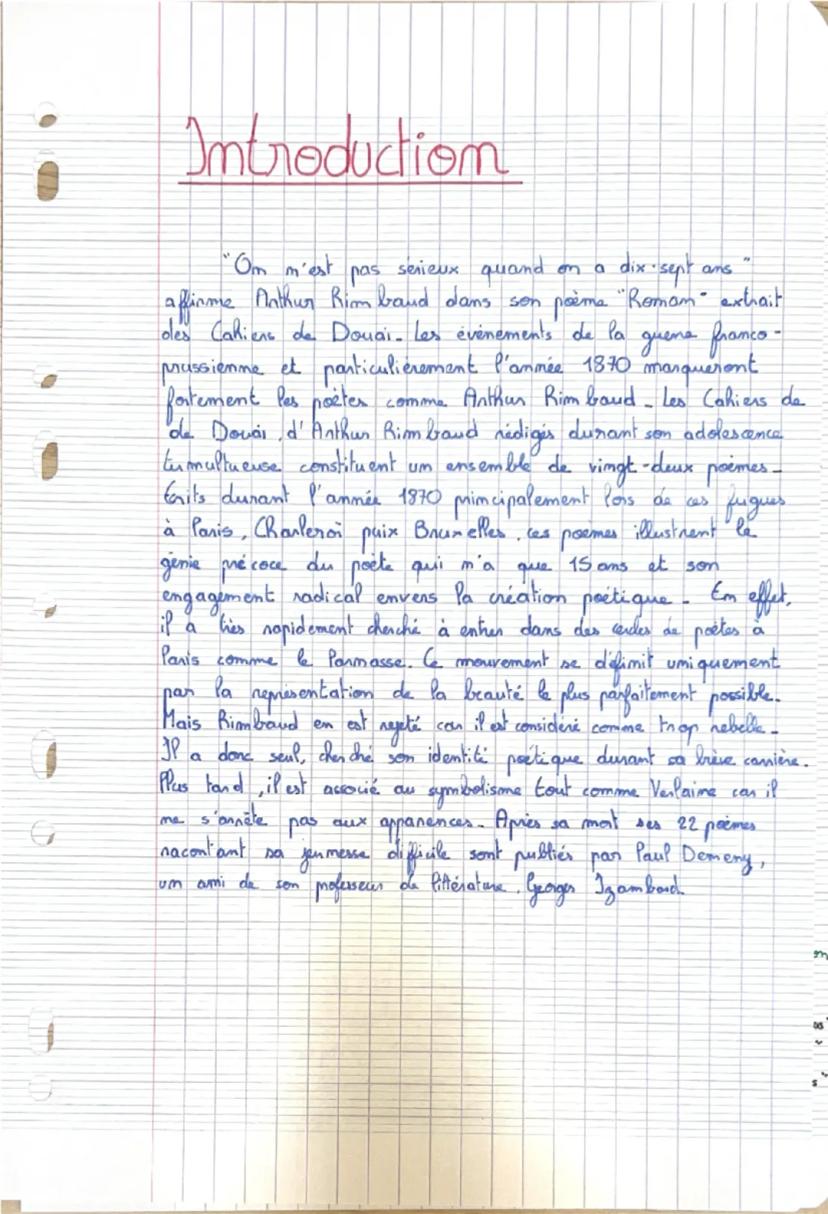 Introduction
"On n'est pas sérieux quand on a dix-sept ans"
affirme Arthur Rimbaud dans son poème "Roman" extrait
des Cahiers de Douai. Les événements de la guerre franco-
prussienne et particulièrement l'année 1870 marqueront
fortement les poètes comme Arthur Rimbaud. Les Cahiers de
de Douai, d'Arthur Rimbaud rédigés durant son adolescence
tumultueuse constituent un ensemble de vingt-deux poèmes.
Ecrits durant l'année 1870 principalement lors de ces fugues
à Paris, Charleroi puix Bruxelles, ces poemes illustrent le
génie précoce du poète qui n'a que 15 ans et son
engagement radical envers la création poétique. En effet,
il a très rapidement cherché à entrer dans des cercles de poètes à
Paris comme le Parnasse. Ce mouvement se définit uniquement
par la représentation de la beauté le plus parfaitement possible.
Mais Rimbaud en est rejeté car il est considéré comme trop rebelle.
Il a donc seul, cherché son identité poétique durant sa brève carrière.
Plus tard, il est associé au symbolisme tout comme Verlaine car il
ne s'arrête pas aux apparences. Après sa mort ses 22 poèmes
racontant sa jeunesse difficile sont publiés par Paul Demeny,
un ami de son professeur de littérature, Georges Izambard.